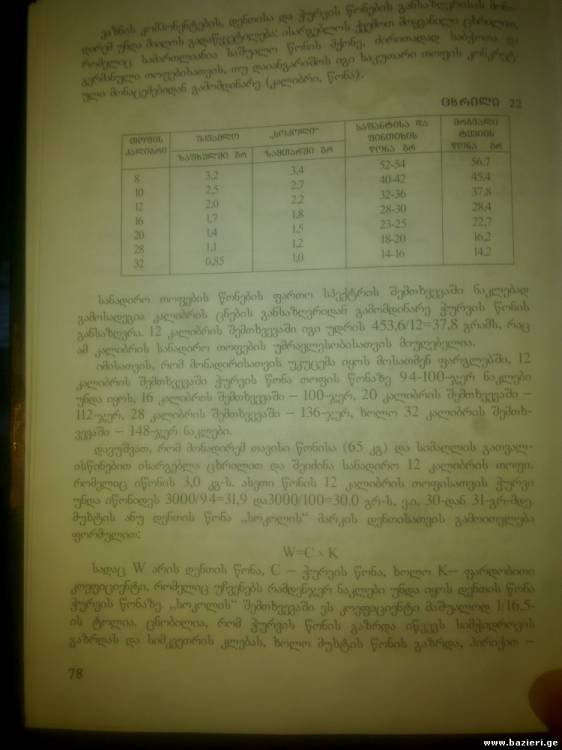 ვაზნის კომპონენტების, დენთისა და ჭურვის წონების განსაზღვრისას მონა-
დირემ უნდა მიიღოს გადაწყვეტილება: ისარგებლოს ქვემოთ მოყვანილი ცხრილით,
რომელიც სამართლიანია საშუალო წონის მქონე, ძირითადად საბჭოთა და
გერმანული თოფებისათვის, თუ დაიანგარიშოს იგი საკუთარი თოფის კონკრეტ-
ული მონაცემებიდან გამომდინარე (კალიბრი, წონა).
ცხრილი 22
თოფის კალიბრი უკვამლო „სოკოლი“ საფანტისა და ფინდიხის წონა გრ მრგვალი ტყვიის წონა გრ
ზაფხულში გრ ზამთარში გრ
8 3,2 3,4 52-54 56,7
10 2,5 2,7 40-42 45,4
12 2,0 2,2 32-36 37,8
16 1,7 1,8 28-30 28,4
20 1,4 1,5 23-25 22,7
28 1,1 1,2 18-20 16,2
32 0,85 1,0 14-16 14,2
სანადირო თოფების წონების ფართო სპექტრის შემთხვევაში ნაკლებად
გამოსადეგია კალიბრის ცნების განსაზღვრიდან გამომდინარე ჭურვის წონის
განსაზღვრა. 12 კალიბრის შემთხვევაში იგი უდრის 453,6/12=37,8 გრამს, რაც
ამ კალიბრის სანადირო თოფების უმრავლესობისათვის მიუღებელია.
იმისათვის, რომ მონადირისათვის უკუცემა იყოს მოსათმენ ფარგლებში, 12
კალიბრის შემთხვევაში ჭურვის წონა თოფის წონაზე 94-100-ჯერ ნაკლები
უნდა იყოს, 16 კალიბრის შემთხვევაში – 100-ჯერ, 20 კალიბრის შემთხვევაში –
112-ჯერ, 28 კალიბრის შემთხვევაში – 136-ჯერ, ხოლო 32 კალიბრის შემთხ-
ვევაში – 148-ჯერ ნაკლები.
დავუშვათ, რომ მონადირემ თავისი წონისა (65 კგ) და სიმაღლის გათვალ-
ისწინებით ისარგებლა ცხრილით და შეიძინა სანადირო 12 კალიბრის თოფი,
რომელიც იწონის 3,0 კგ-ს. ასეთი წონის 12 კალიბრის თოფისათვის ჭურვი
უნდა იწონიდეს 3000/94=31,9 და3000/100=30.0 გრ-ს, ე.ი. 30-დან 31-გრ-მდე.
მუხტის ანუ დენთის წონა „სოკოლის“ მარკის დენთისათვის გამოითვლება
ფორმულით:
W=C × K
სადაც W არის დენთის წონა, C – ჭურვის წონა, ხოლო K– ფარდობითი
კოეფიციენტი, რომელიც უჩვენებს რამდენჯერ ნაკლები უნდა იყოს დენთის წონა
ჭურვის წონაზე. „სოკოლის“ შემთხვევაში ეს კოეფიციენტი მაშუალოდ 1/16,5-
ის ტოლია. ცნობილია, რომ ჭურვის წონის გაზრდა იწვევს სიმჭიდროვის
გაზრდას და სიმკვეთრის კლებას, ხოლო მუხტის წონის გაზრდა, პირიქით –
78
www.bazieri.ge